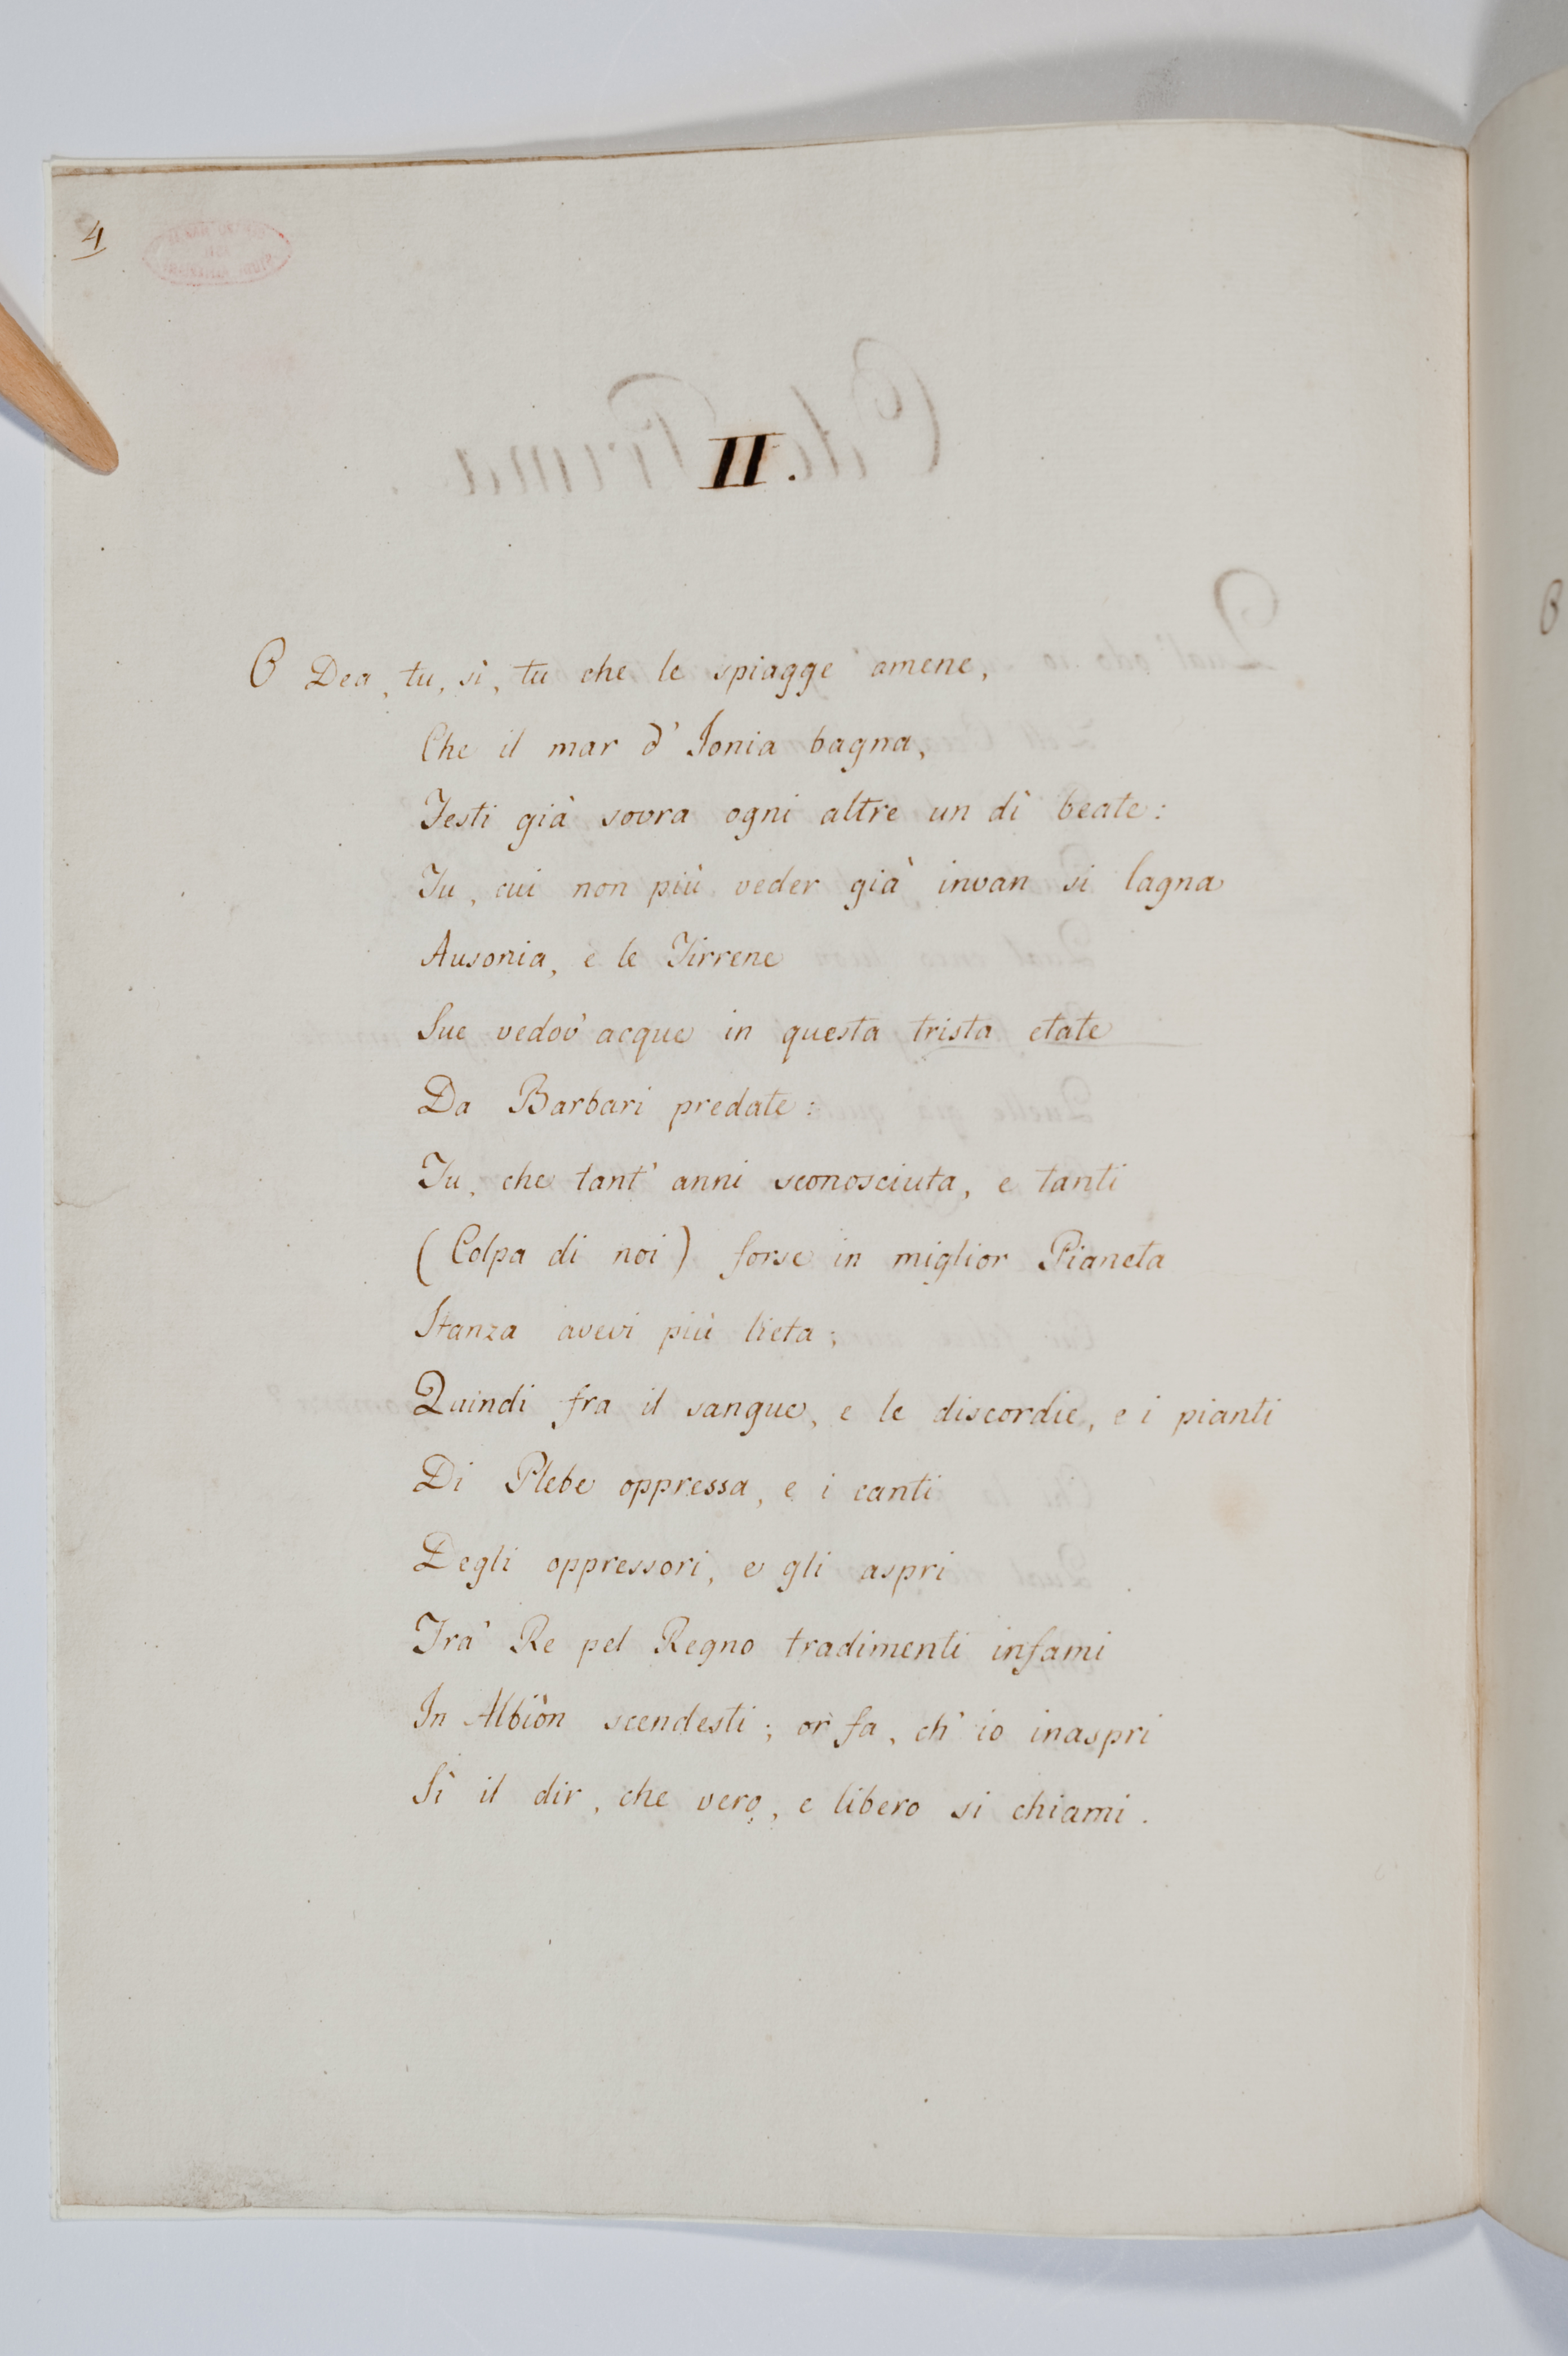 4
II.
O Dea, tu, sì, tu che le spiagge amene,
Che il mar d' Jonia bagna,
Festi già sovra ogni altre un dì beate:
Tu, cui non più veder già invan si lagna
Ausonia, e le Tirrene
Sue vedov' acque in questa trista etate
Da Barbari predate:
Tu, che tant' anni sconosciuta, e tanti
(Colpa di noi) forse in miglior Pianeta
Stanza avevi più lieta;
Quindi fra il sangue, e le discordie, e i pianti
Di Plebe oppressa, e i canti
Degli oppressori, e gli aspri
Tra' Re pel Regno tradimenti infami
In Albiòn scendesti; or fa, ch' io inaspri
Sì il dir, che vero, e libero si chiami.